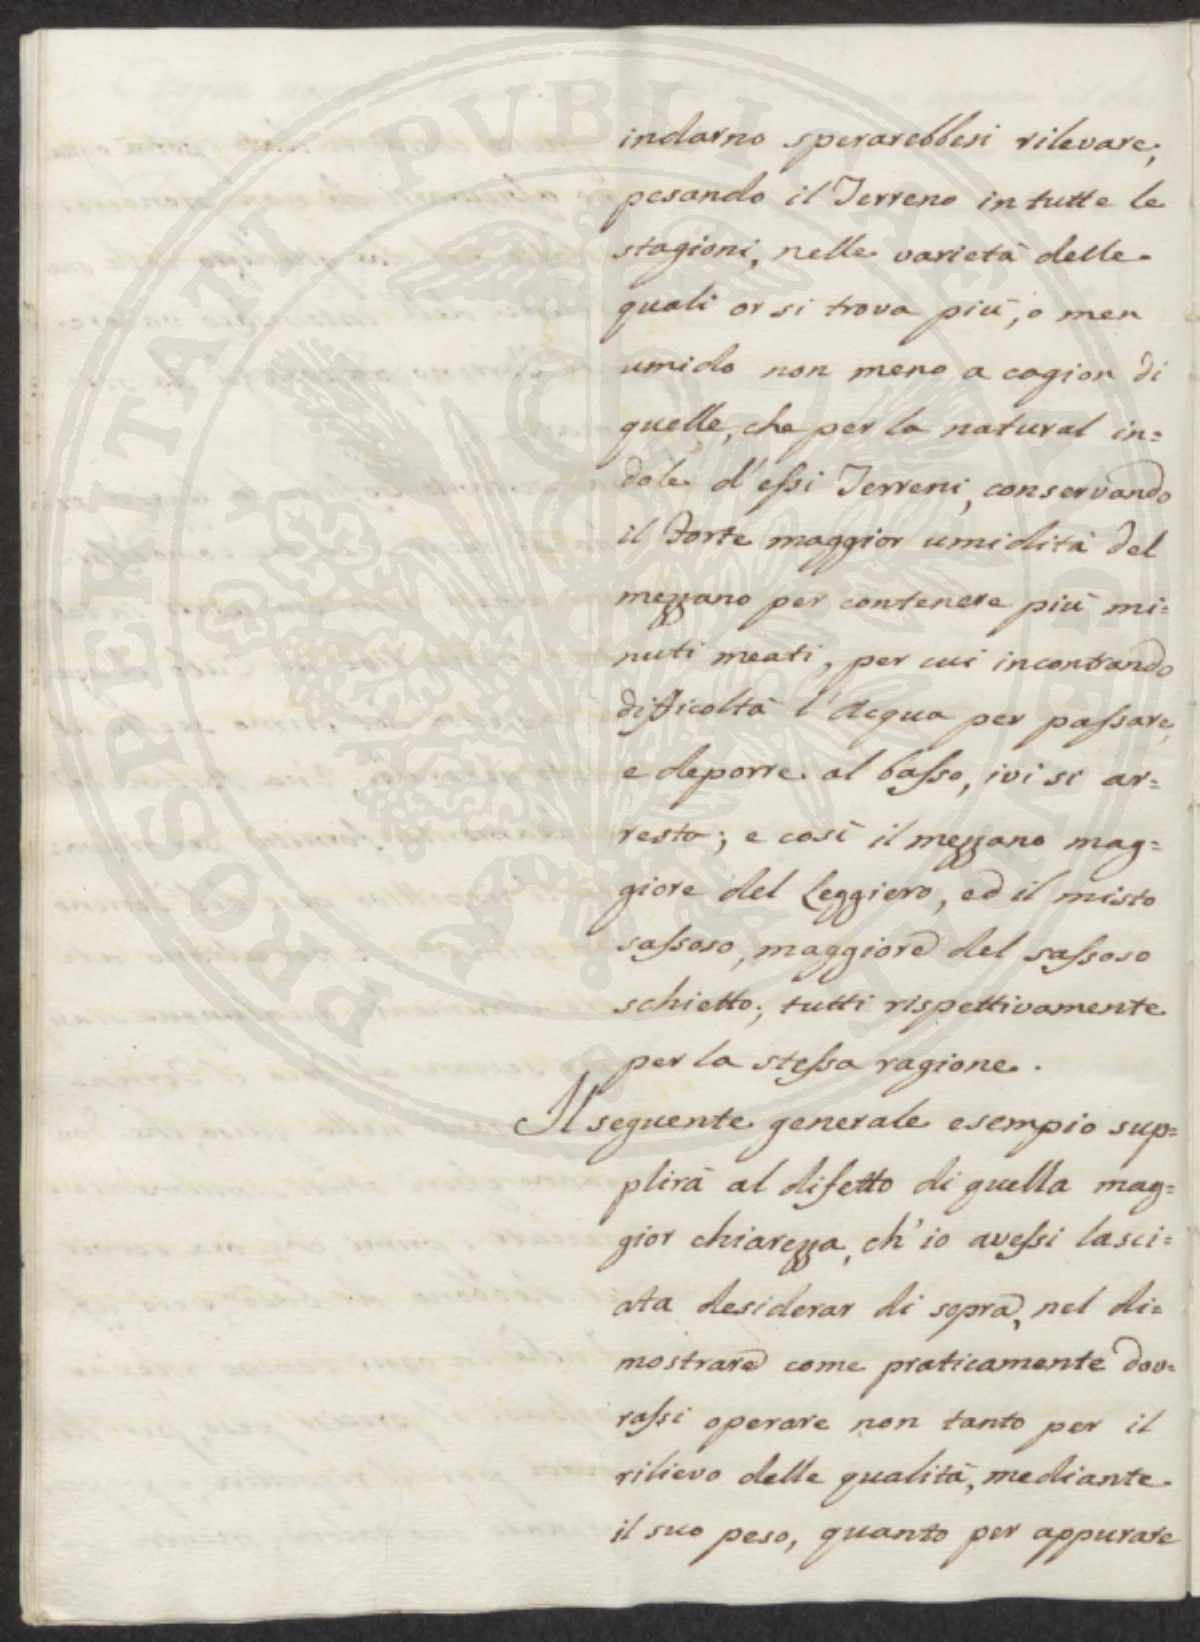 indarno sperarebbesi rilevare,
pesando il Terreno in tutte le
stagioni, nelle varietà delle
quali or si trova più, o men
umido non meno a cagion di
quelle, che per la natural in=
dole d'essi Terreni, conservando
il Forte maggior umidità del
mezzano per contenere più mi=
nuti meati, per cui incontrando
difficoltà l'Acqua per passare,
e deporre al basso, ivi si ar=
resta; e così il mezzano mag=
giore del Leggiero, ed il misto
sassoso, maggiore del sassoso
schietto; tutti rispettivamente
per la stessa ragione.
Il seguente generale esempio sup=
plirà al difetto di quella mag=
gior chiarezza, ch'io avessi lasci=
ata desiderar di sopra, nel di=
mostrare come praticamente dov=
rassi operare non tanto per il
rilievo delle qualità, mediante
il suo peso, quanto per appurare
PROSPERITATI PVBLICAE AVGENDAE